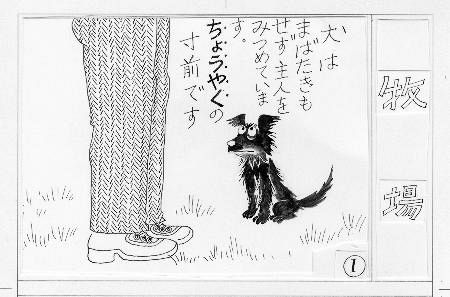 牧場
犬は
まばたきも
せず主人を
みつめていま
す。
ちょうやくの
寸前です
①